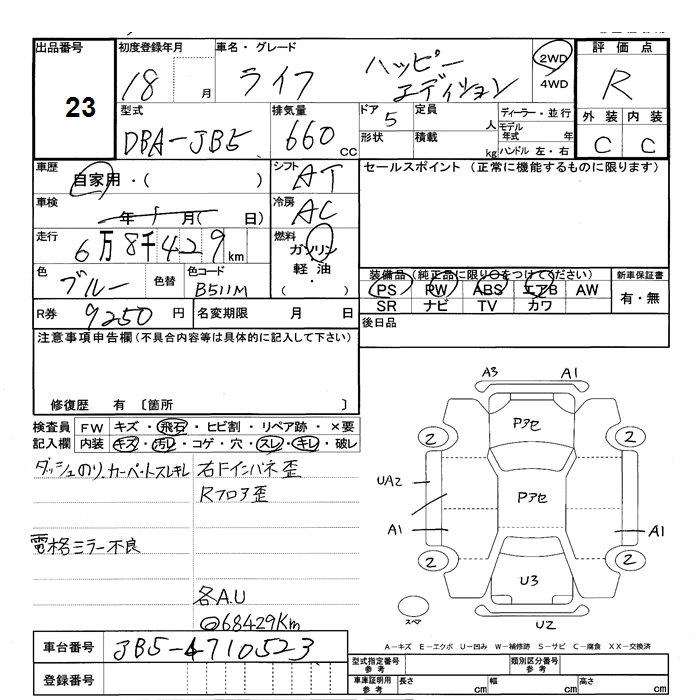 出品番号
23
初度登録年月
18 月
車名・グレード
ライフ ハッピーエディション
2WD
4WD
評価点
R
型式
DBA-JB5
排気量
660 cc
ドア
5
定員
人
ディーラー・並行
モデル年式 年
ハンドル 左・右
形状
積載
kg
外装 内装
C C
車歴
自家用・( )
シフト
AT
セールスポイント (正常に機能するものに限ります)
車検
年 月( 日)
冷房
AC
走行
6万8千429km
燃料
ガソリン
軽油
・
( )
色
ブルー
色替
色コード
B511M
装備品(純正品に限り○をつけてください)
新車保証書
PS PW ABS エアB AW
有・無
SR ナビ TV カワ
R券 9250 円
名変期限 月 日
後日品
注意事項申告欄(不具合内容等は具体的に記入して下さい)
修復歴 有 〔箇所 〕
検査員 FW キズ・飛石・ヒビ割・リペア跡・×要
記入欄 内装 キズ・汚レ・コゲ・穴・スレ・キレ・破レ
ダッシュのり、カーペートスレキレ
右Fインパネ歪
Rフロア歪
電格ミラー不良
各A.U
@68429Km
A3 A1
Pアセ
2 2
UA2
Pアセ
A1 A1
2 2
U3
スペア
U2
A−キズ E−エクボ U−凹み W−補修跡 S−サビ C−腐食 XX−交換済
車台番号 JB5-4710523
登録番号
型式指定番号 参考
類別区分番号 参考
車庫証明用 参考
長さ cm
幅 cm
高さ cm